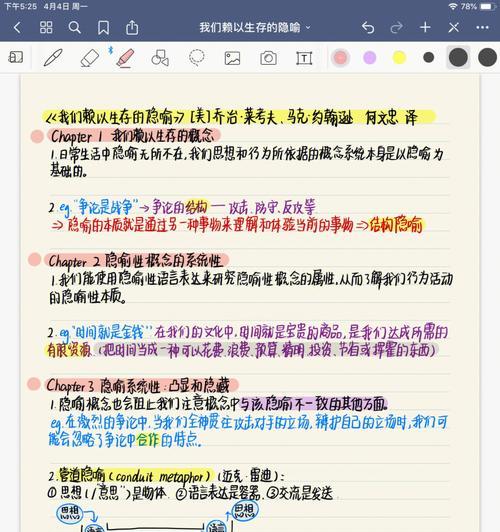 下午5:25 4月4日 周一
78%
我们赖以生存的隐喻
《我们赖以生存的隐喻》[美]乔治·莱考夫、马克·约翰逊 何文忠 译
Chapter 1 我们赖以生存的概念
1.日常生活中隐喻无所不在,我们思想和行为所依据的概念系统本身是以隐喻为
基础的。
2.eg.“争论是战争”→争论的结构——攻击、防守、反攻等
⇒隐喻的本质就是通过另一种事物来理解和体验当前的事物⇒结构隐喻
Chapter 2 隐喻性概念的系统性
1.我们能使用隐喻性语言表达来研究隐喻性概念的属性,从而了解我们行为活动
的隐喻性本质。
2.eg.“时间就是金钱”在我们的文化中,时间就是宝贵的商品,是我们达成所需的
有限资源(把时间当成一种可以花费、浪费、预算、精明、投资、节省或挥霍的东西)
Chapter 3 隐喻系统性:凸显和隐藏
1.隐喻概念也会阻止我们注意概念中与该隐喻不一致的其他方面。
eg.在激烈的争论中,当我们全神贯注攻击对手的立场,辩护自己的立场时,我们可
能会忽略了争论中合作的特点。
2.管道隐喻(conduit metaphor)(迈克·雷迪):
①思想(/意思)是物体 ②语言表达是容器 ③交流是发送
思想 思想
语言